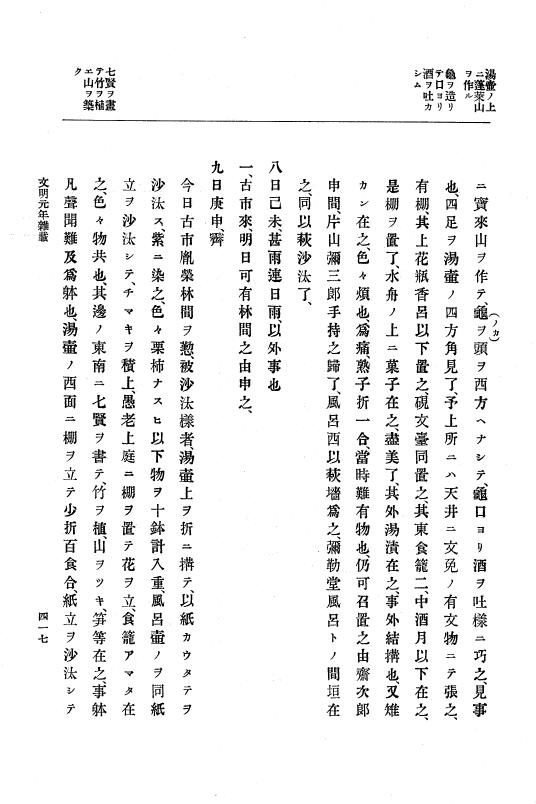 湯壺ノ上
ニ蓬萊山
ヲ作ル
龜ヲ造リ
テ口ヨリ
酒ヲ吐カ
シム
七賢ヲ畫
テ竹ヲ植
エ山ヲ築
ク
ニ寶來山ヲ作テ、龜ヲ頭ヲ西方ヘナシテ、龜口ヨリ酒ヲ吐樣ニ巧之、見事
(ノカ)
也、四足ヲ湯壷ノ四方角見了、予上所ニハ天井ニ文免ノ有文物ニテ張之、
有棚、其上花瓶香呂以下置之、硯文臺同置之、其東食籠二、中酒月以下在之、
是棚ヲ置了、水舟ノ上ニ菓子在之、盡美了、其外湯漬在之、事外結搆也、又雉
カン在之、色々煩也、爲痛、熟子折一合、當時難有物也、仍可召置之由齋次郎
申間、片山彌三郎手持之歸了、風呂西以萩墻爲之、彌勒堂風呂トノ間垣在
之、同以萩沙汰了、
八日己未、甚雨連日雨以外事也
一、古市來、明日可有林間之由申之、
九日庚申、霽
今日古市胤榮林間ヲ懃被沙汰樣者、湯壷上ヲ折ニ搆テ、以紙カウタテヲ
沙汰ス、紫ニ染之、色々栗柿ナスヒ以下物ヲ十鉢計入重、風呂壷ノヲ同紙
立ヲ沙汰シテ、チマキヲ積上、愚老上庭ニ棚ヲ置テ花ヲ立、食籠アマタ在
之、色々物共也、其邊ノ東南ニ七賢ヲ書テ、竹ヲ植、山ヲツキ、笋等在之、事躰
凡聲聞難及爲躰也、湯壷ノ西面ニ棚ヲ立テ少折百食合、紙立ヲ沙汰シテ
文明元年雜載
四一七